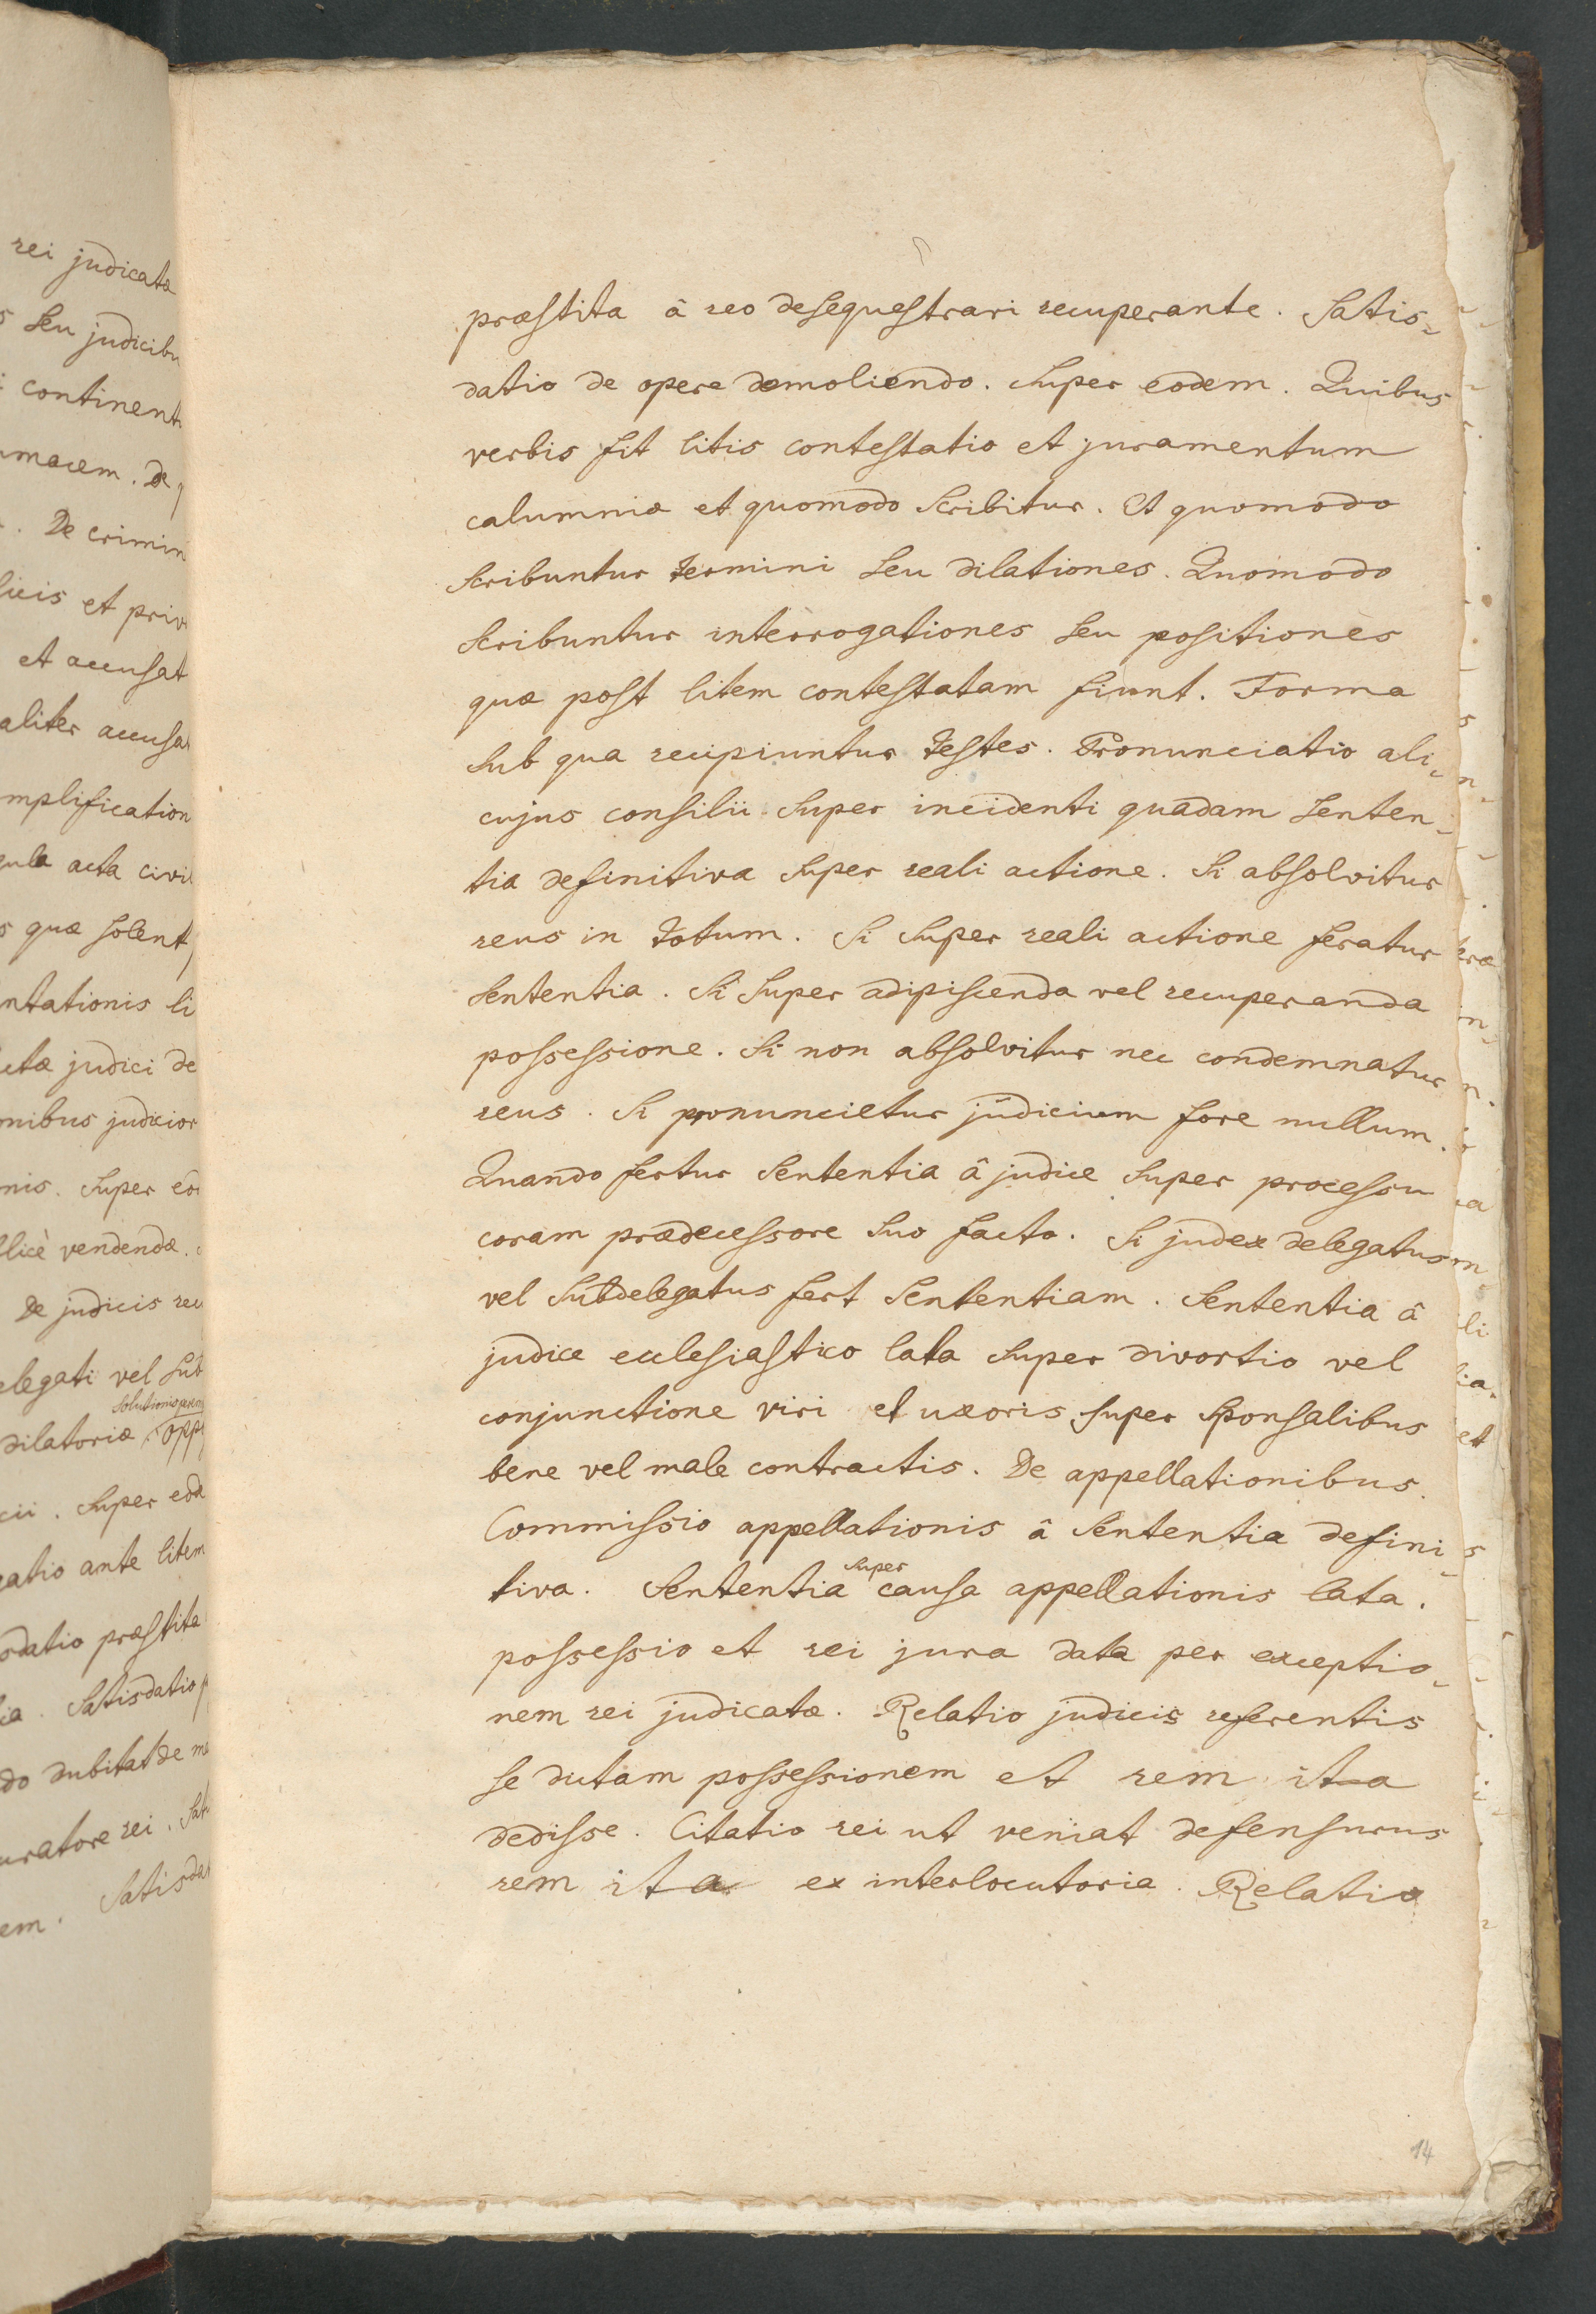 rei judicatæ
seu judicibu
continent
macem. De
De crimin
et priv
et accusat
aliter accusa
mplification
acta civil
quæ solent
ntationis li
judici de
nibus judicior
nis. Super eo
vendendæ.
De judiciis rec
elegati vel sub
solutionis
dilatoriæ, opp
cii. Super eod
ante litem
datio præstita
Satisdatio
do dubitat de
uratore rei. Sat
em. Satisda
præstita â reo desequestrari recuperante. Satis-
datio de opere demoliendo. Super eodem. Quibus
verbis fit litis contestatio et juramentum
calumniæ et quomodo scribitur. Et quomodo
scribuntur termini seu dilationes. Quomodo
scribuntur interrogationes seu positiones
quæ post litem contestatam fiunt. Forma
sub qua recipiuntur testes. Pronunciatio ali-
cujus consilii super incidenti quadam senten-
tia definitiva super reali actione. Si absolvitur
reus in totum. Si super reali actione feratur
sententia. Si super adipiscenda vel recuperanda
possessione. Si non absolvitur nec condemnatur
reus. Si pronuncietur judicium fore nullum.
Quando fertur sententia â judice super processu
coram prædecessore suo facto. Si judex delegatus
vel subdelegatus fert sententiam. Sententia â
judice ecclesiastico lata super divortio vel
conjunctione viri et uxoris super sponsalibus
bene vel male contractis. De appellationibus.
Commissio appellationis â sententia defini-
super
tiva. Sententia causa appellationis lata.
possessio et rei jura data per exceptio-
nem rei judicatæ. Relatio judicis referentis
se dictam possessionem et rem ita
dedisse. Citatio rei ut veniat defensurus
rem ita ex interlocutoria. Relatio
14